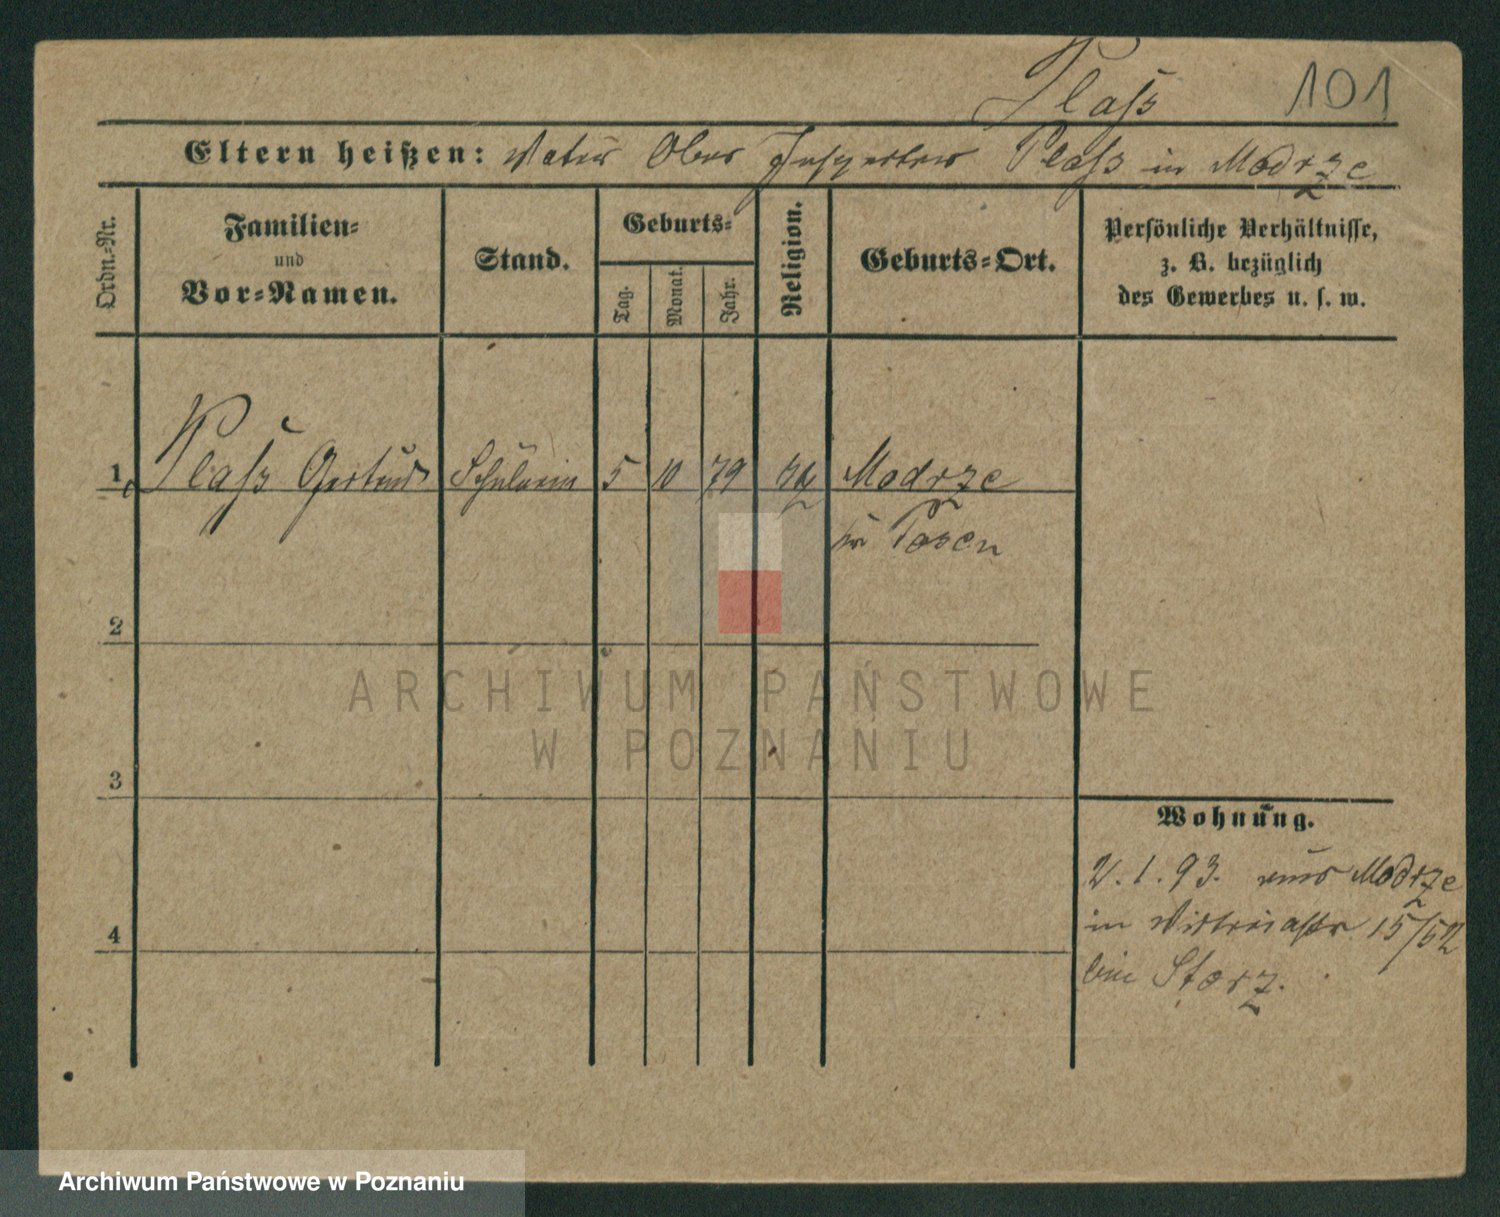 Plaß 101
Eltern heißen: Vater Ober Inspector Plaß in Modrze
Ordn.-Nr.
Familien-
und
Vor-Namen.
Stand.
Geburts-
Tag.
Monat.
Jahr.
Religion.
Geburts-Ort.
Persönliche Verhältnisse,
z. B. bezüglich
des Gewerbes u. s. w.
1, Plaß Gertrud Schülerin 5 10 79 Modrze
Posen
2
3
4
ARCHIWUM PAŃSTWOWE
W POZNANIU
Wohnung.
2. 1. 93. aus Modrze
in Victoriastr 15/
bei Storz.
Archiwum Państwowe w Poznaniu